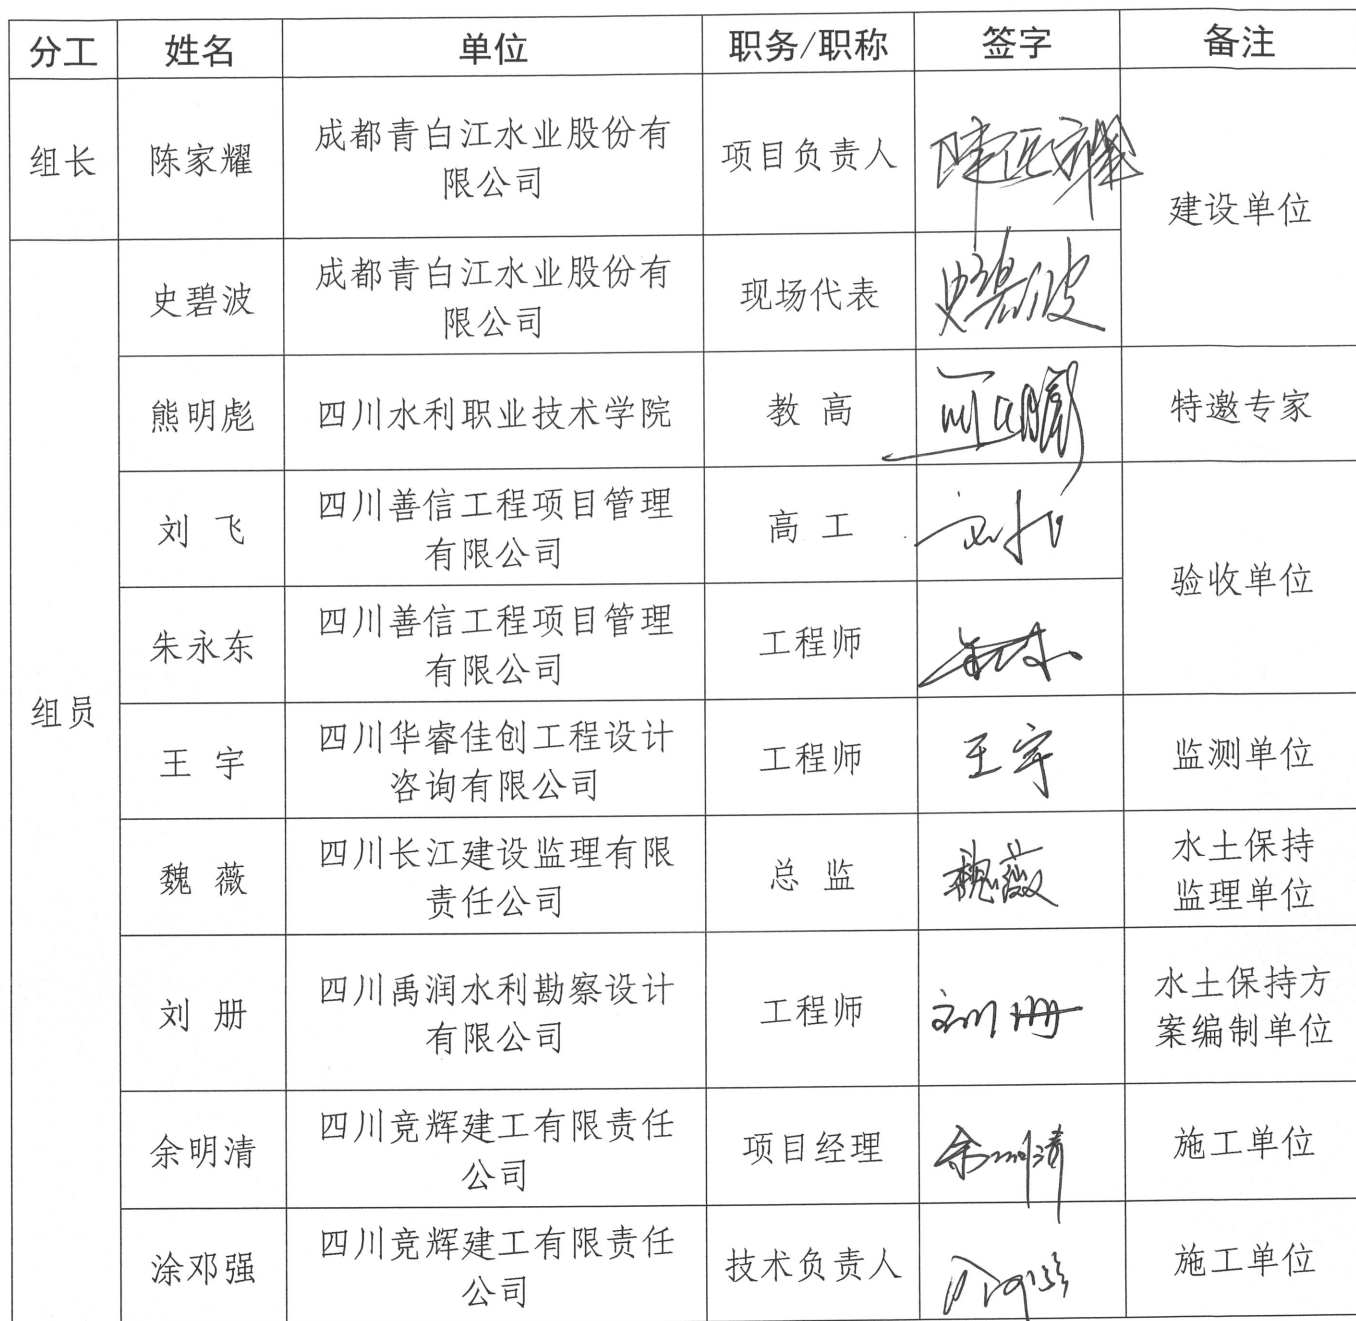 分工 姓名 单位 职务/职称 签字 备注
组长 陈家耀 成都青白江水业股份有
限公司 项目负责人 陈家耀 建设单位
组员
史碧波 成都青白江水业股份有
限公司 现场代表 史碧波
熊明彪 四川水利职业技术学院 教 高 特邀专家
刘 飞 四川善信工程项目管理
有限公司 高 工 验收单位
朱永东 四川善信工程项目管理
有限公司 工程师
王 宇 四川华睿佳创工程设计
咨询有限公司 工程师 王宇 监测单位
魏 薇 四川长江建设监理有限
责任公司 总 监 魏薇 水土保持
监理单位
刘 册 四川禹润水利勘察设计
有限公司 工程师 刘册 水土保持方
案编制单位
余明清 四川竞辉建工有限责任
公司 项目经理 余明清 施工单位
涂邓强 四川竞辉建工有限责任
公司 技术负责人 施工单位